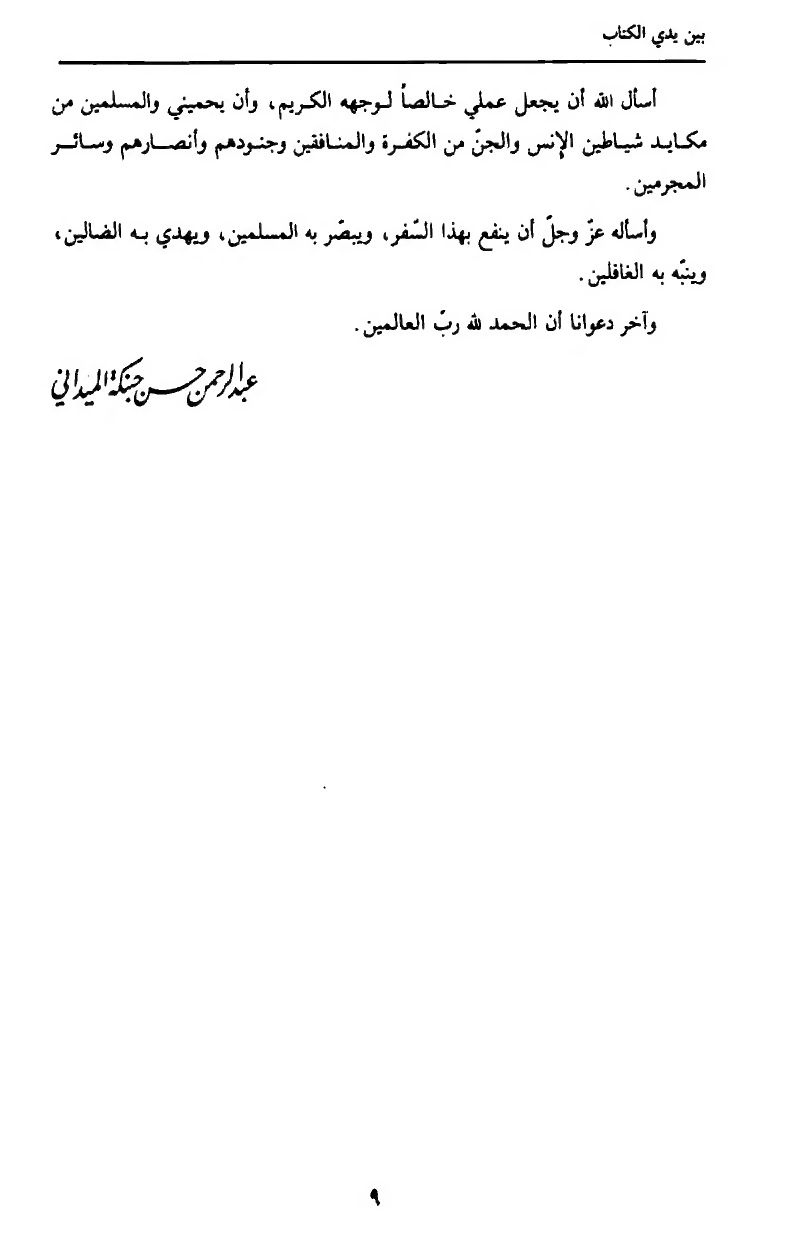 بين يدي الكتاب
أسأل الله أن يجعل عملي خالصاً لوجهه الكريم، وأن يحميني والمسلمين من
مكايد شياطين الإنس والجنّ من الكفرة والمنافقين وجنودهم وأنصارهم وسائر
المجرمين.
وأسأله عزّ وجلّ أن ينفع بهذا السّفر، ويبصّر به المسلمين، ويهدي به الضالين،
وينبّه به الغافلين.
وآخر دعوانا أن الحمد لله ربّ العالمين.
عبد الرحمن حسن حبنكة الميداني
٩